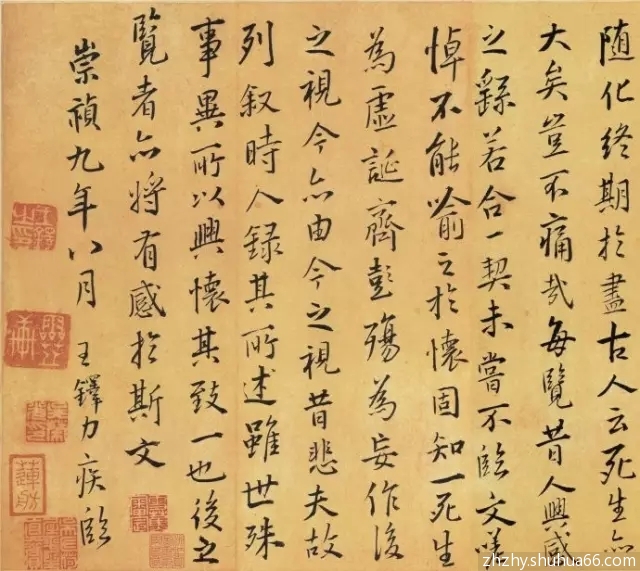 随化終期於盡古人云死生亦
大矣豈不痛哉每覽昔人興感
之繇若合一契未嘗不臨文嗟
悼不能喻之於懷固知一死生
為虛誕齊彭殤為妄作後
之視今亦由今之視昔悲夫故
列叙時人録其所述雖世殊
事異所以興懷其致一也後之
覽者亦将有感於斯文
崇禎九年八月 王鐸力疾臨
王鐸之印
蓮舫
zhzhy.shuhua66.com